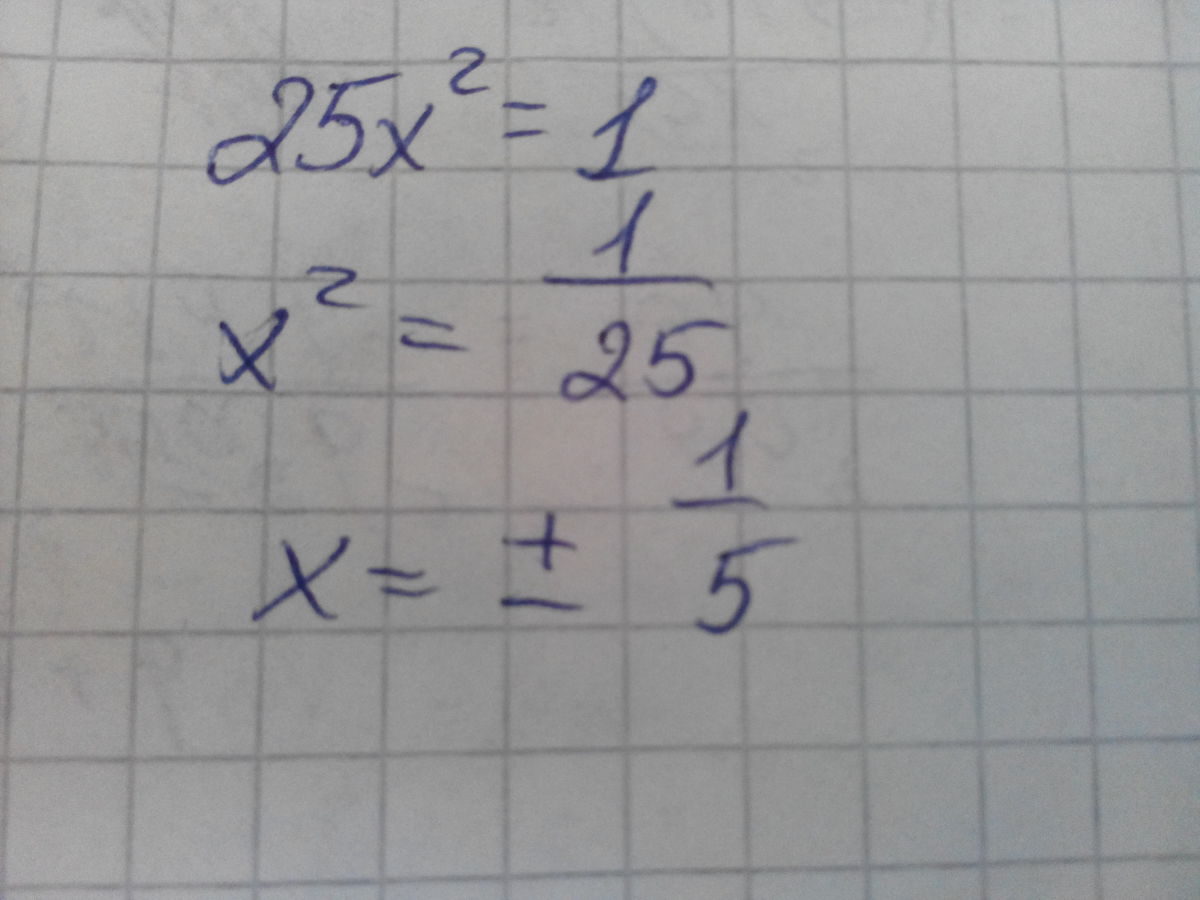 25x² = 1
x² = 1/25
x = ± 1/5